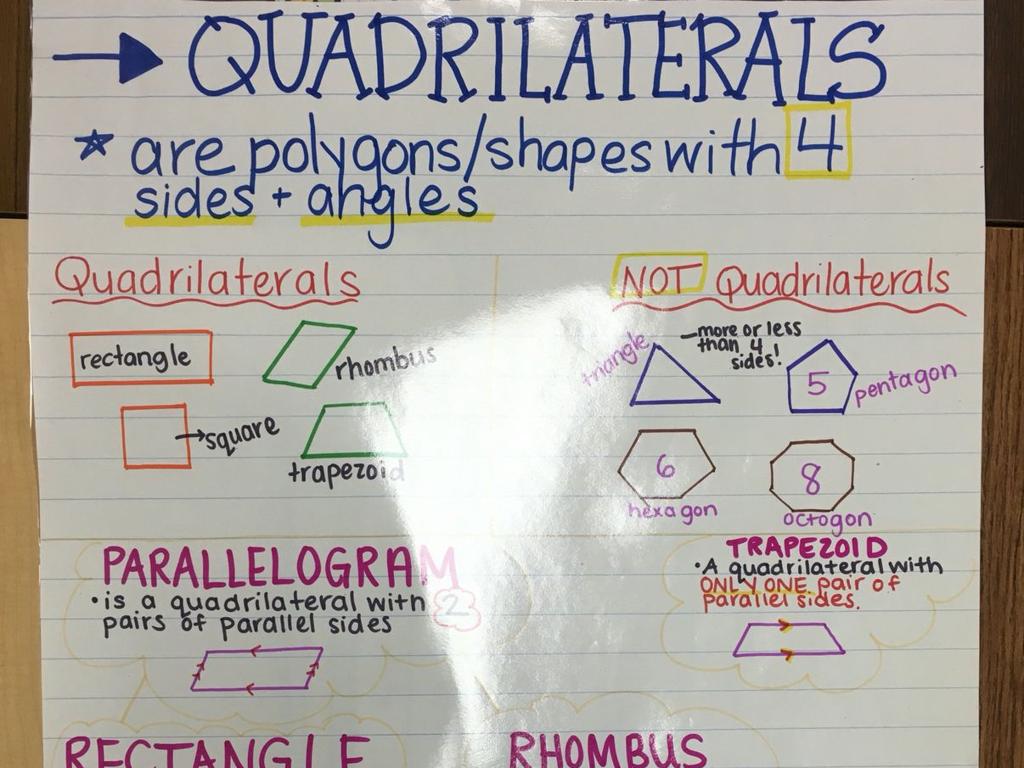 QUADRILATERALS
are polygons/shapes with 4
sides + angles
Quadrilaterals
rectangle
rhombus
square
trapezoid
NOT Quadrilaterals
triangle
more or less
than 4
sides!
5
pentagon
6
hexagon
8
octogon
PARALLELOGRAM
• is a quadrilateral with 2
pairs of parallel sides
TRAPEZOID
• A quadrilateral with
ONLY ONE pair of
parallel sides.
RECTANGLE
RHOMBUS